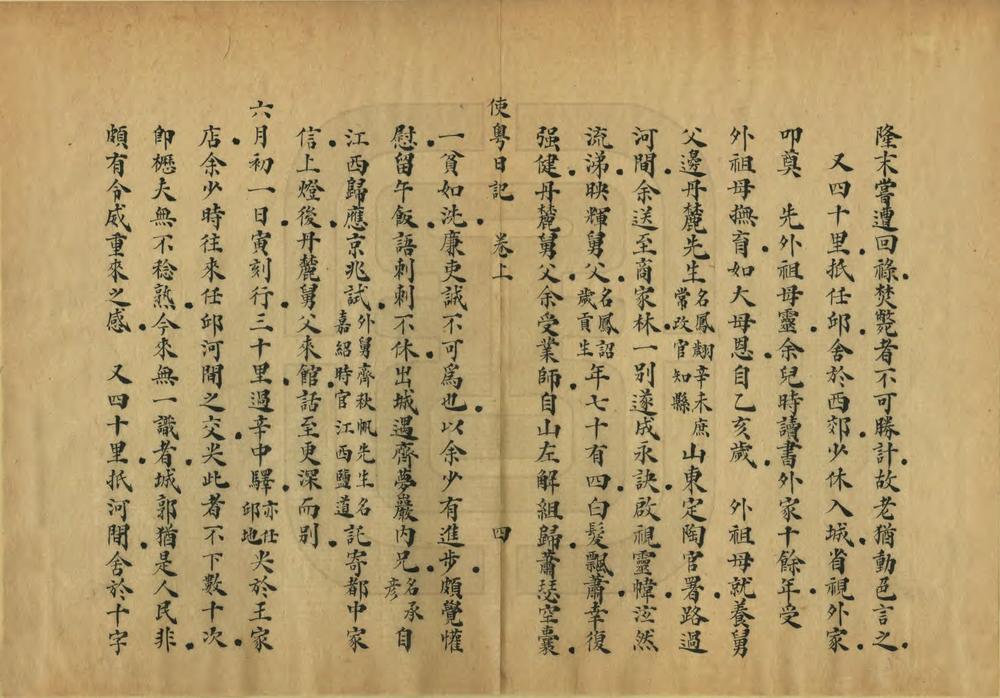 隆末嘗遭回祿焚斃者不可勝計故老猶動色言之
又四十里抵任邱舍於西郊少休入城省視外家
叩奠　先外祖母靈余兒時讀書外家十餘年受
外祖母撫育如大母恩自乙亥歲　外祖母就養舅
父邊丹麓先生名鳳翽辛未庶常改官知縣山東定陶官署路過
河間余送至商家林一別遂成永訣啟視靈幃泫然
流涕映輝舅父名鳳詔歲貢生年七十有四白髮飄蕭幸復
强健丹麓舅父余受業師自山左解組歸蕭瑟空囊
使粵日記　卷上　四
一貧如洗廉吏誠不可為也以余少有進步頗覺懽
慰留午飯語刺刺不休出城遇齊夢巖内兄名承彥自
江西歸應京兆試外舅齊秋帆先生名嘉紹時官江西鹽道託寄都中家
信上燈後丹麓舅父來館話至更深而別
六月初一日寅刻行三十里過辛中驛亦任邱地尖於王家
店余少時往來任邱河間之交尖此者不下數十次
即櫪夫無不稔熟今來無一識者城郭猶是人民非
頗有令威重來之感　又四十里抵河間舍於十字